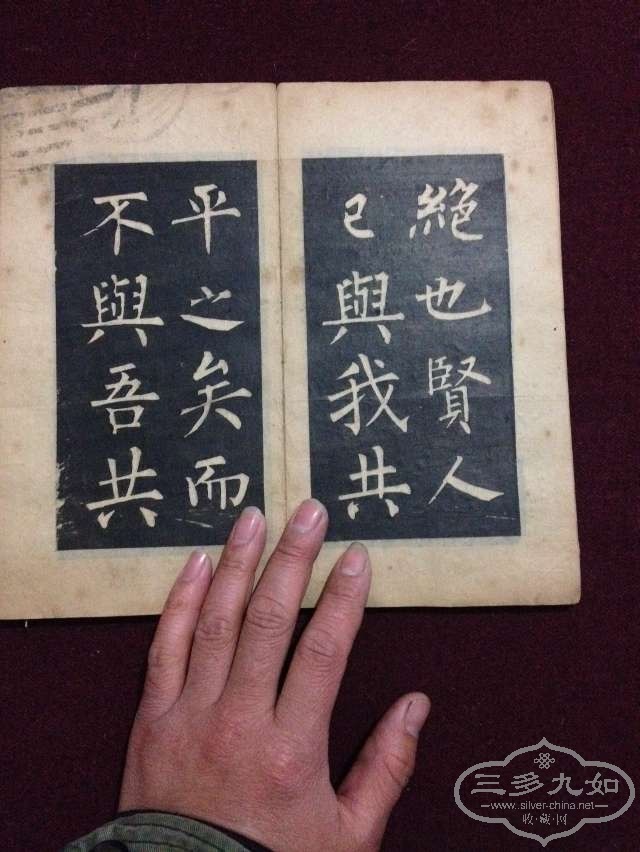 絶也賢人
已與我共
平之矣而
不與吾共
三多九如
www.silver-china.net
收·藏·网